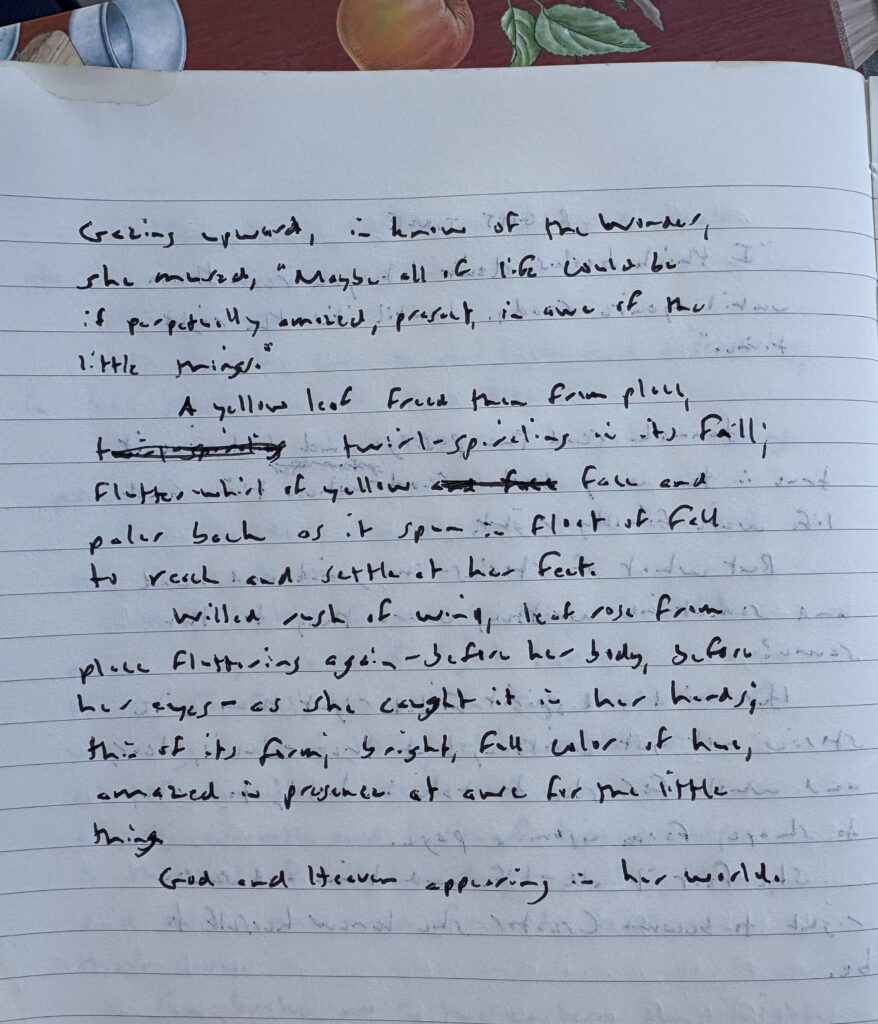 Gazing upward, in know of the wonder,
she mused, "Maybe all of life could be
if perpetually amazed, present, in awe of the
little things."
A yellow leaf freed then from place,
twirl-spiraling twirl-spiraling in its fall;
flutter-whirl of yellow face and
paler back as it spun in float of fall
to reach and settle at her feet.
Willed rush of wind, leaf rose from
place fluttering again - before her body, before
her eyes - as she caught it in her hands;
thin of its form, bright, fall color of hue,
amazed in presence at awe for the little
thing
God and Heaven appearing in her world.